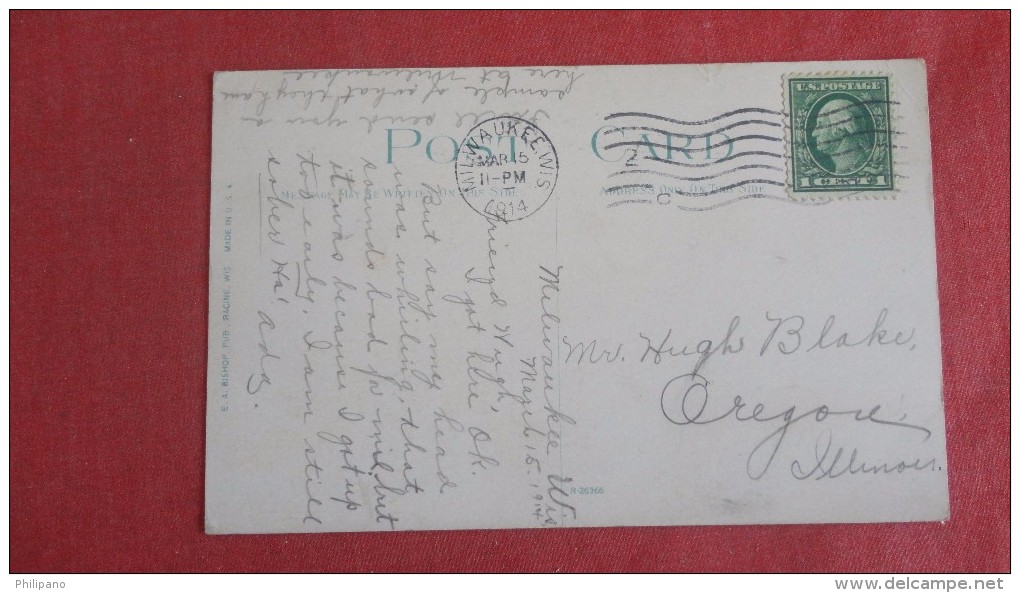 POST CARD
MESSAGE MAY BE WRITTEN ON THIS SIDE
ADDRESS ONLY ON THIS SIDE
MILWAUKEE, WIS
MAR 15
11-PM
1914
2
C
U.S. POSTAGE
1 CENT 1
Milwaukee Wis
March 15. 1914
Friend Hugh,
I got here ok.
But say my head
was whirling, that
sounds bad for mil. but
it was because I got up
to early. I am still
sober Ha! ady.
I'll send you a
sample of what they have
here at Milwaukee
Mr. Hugh Blake,
Oregon,
Illinois.
E. A. BISHOP, PUB., RACINE, WIS. MADE IN U.S.A.
R-26366
Philipano
www.delcampe.net